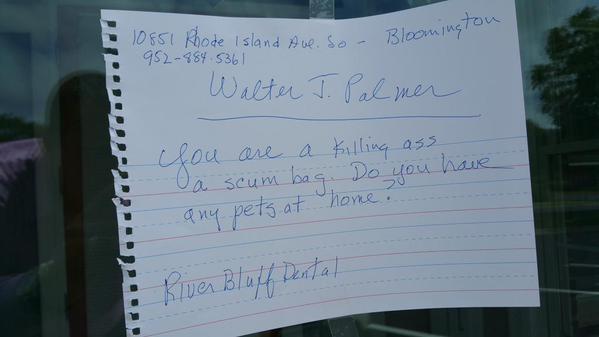 10851 Rhode Island Ave. So - Bloomington
952-884-5361
Walter J. Palmer
You are a killing ass
a scum bag. Do you have
any pets at home?
River Bluff Dental